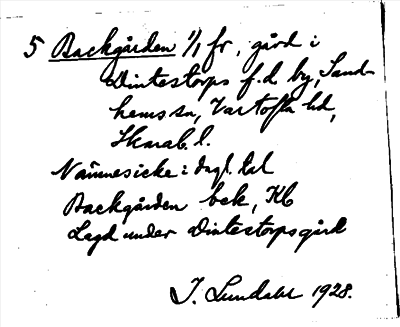 5 Backgården 1/1 fr, gård i
Dintestorps f.d. by, Sand-
hems sn, Vartofta hd,
Skarab. l.
Nämnes icke i dagl. tal
Backgården bek, Kb
Lagd under Dintestorpsgård
J. Lundahl 1928.